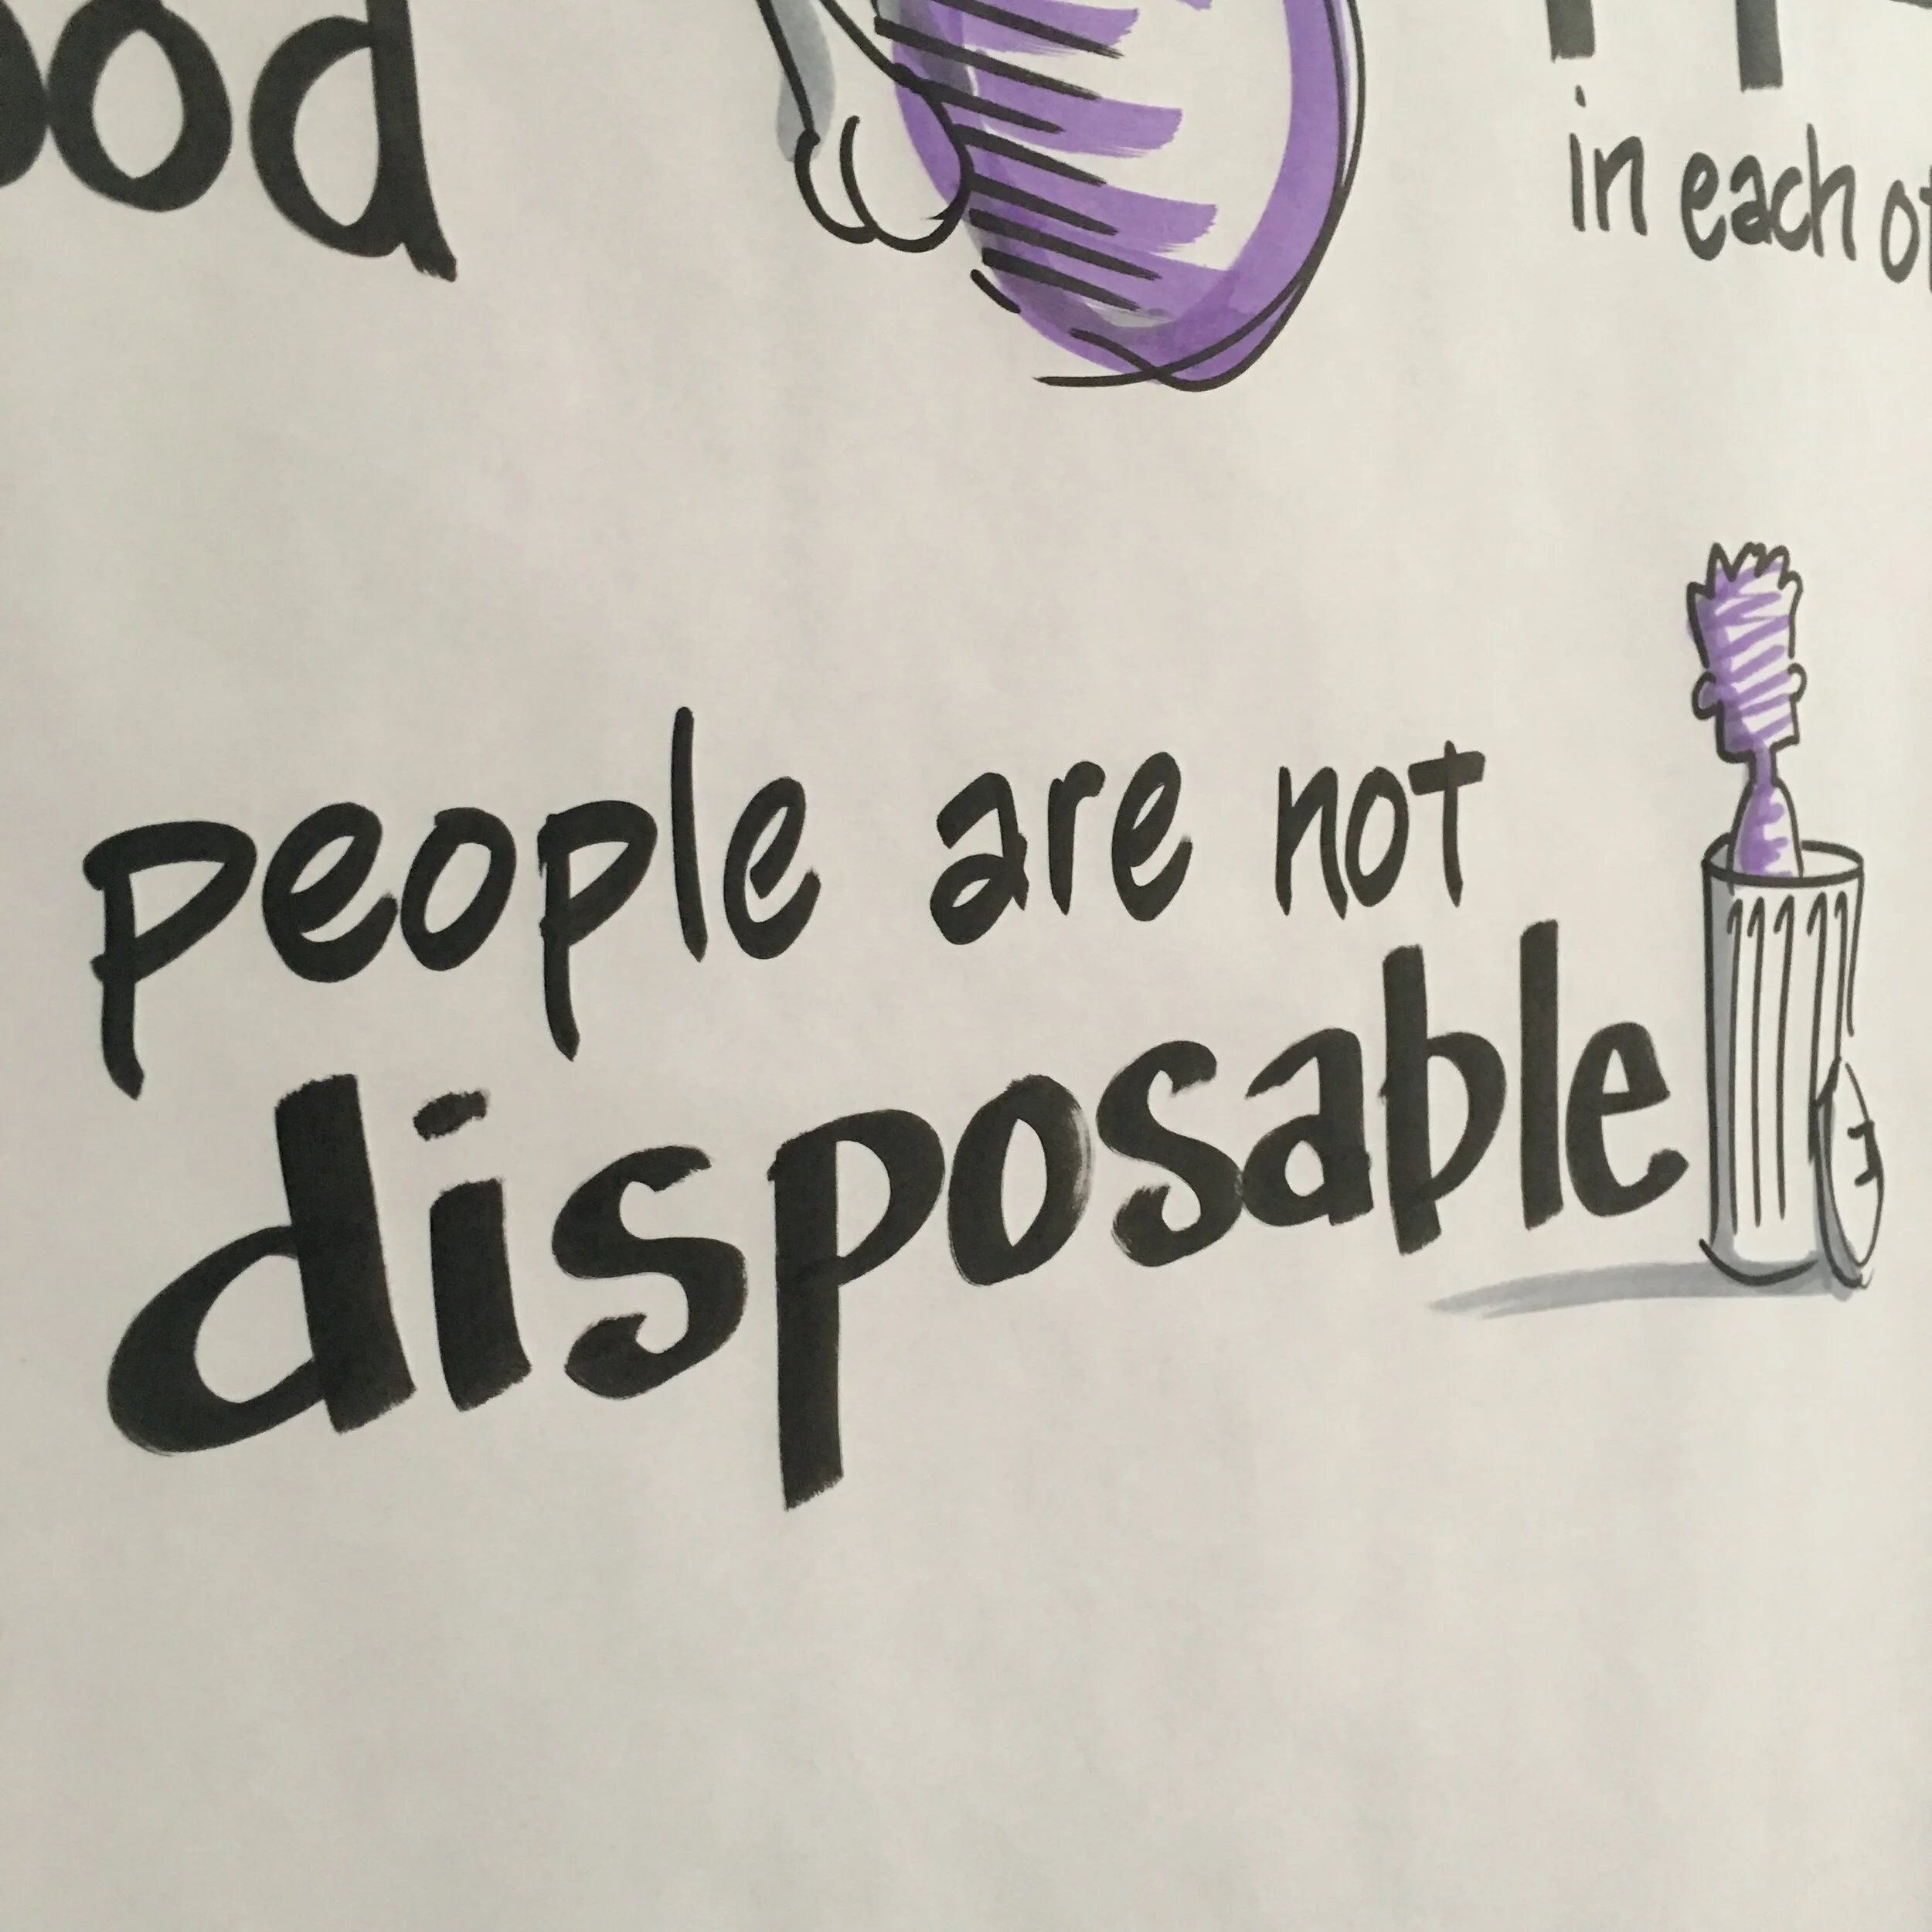 in each of
people are not
disposable